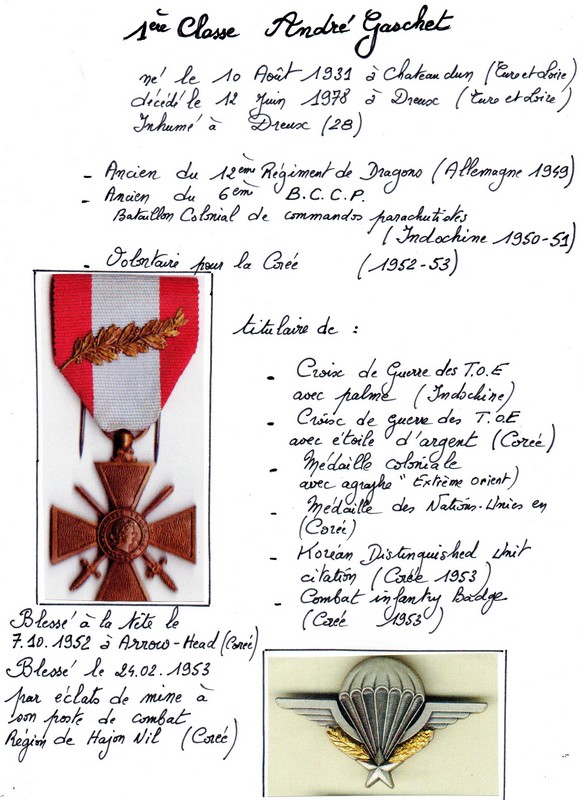 1ère Classe André Gaschet
né le 10 Août 1931 à Chateaudun (Eure et Loire)
décédé le 12 Juin 1978 à Dreux (Eure et Loire)
Inhumé à Dreux (28)
- Ancien du 12ème Régiment de Dragons (Allemagne 1949)
- Ancien du 6ème B.C.C.P.
Bataillon Colonial de commandos parachutistes
(Indochine 1950-51)
- Volontaire pour la Corée (1952-53)
titulaire de :
- Croix de Guerre des T.O.E
avec palme (Indochine)
- Croix de Guerre des T.O.E
avec étoile d'argent (Corée)
- Médaille coloniale
avec agraphe "Extrème orient)
- Médaille des Nations-Unies en
(Corée)
- Koréan Distinguished Unit
citation (Corée 1953)
- Combat infantry Badge
(Corée 1953)
Blessé à la tête le
7.10.1952 à Arrow-Head (Corée)
Blessé le 24.02.1953
par éclats de mine à
son poste de combat
Région de Hajon Nil (Corée)